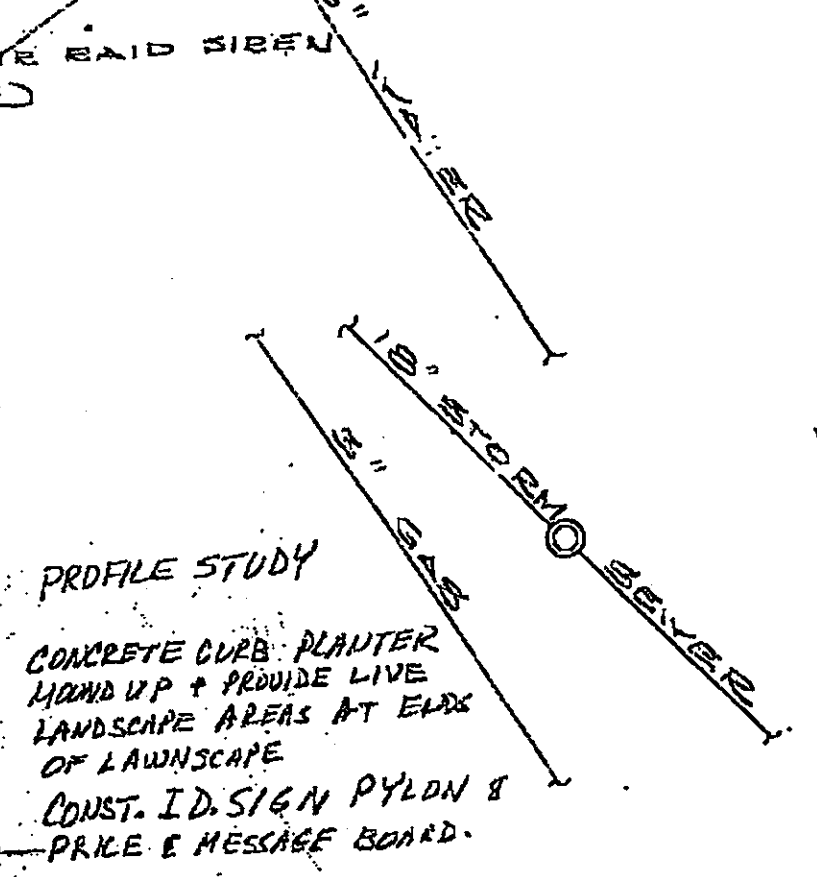 RAID SIREN
WATER
18" STORM SEWER
" GAS
PROFILE STUDY
CONCRETE CURB PLANTER
MOUND UP & PROVIDE LIVE
LANDSCAPE AREAS AT ENDS
OF LAWNSCAPE
CONST. I.D. SIGN PYLON &
PRICE & MESSAGE BOARD.